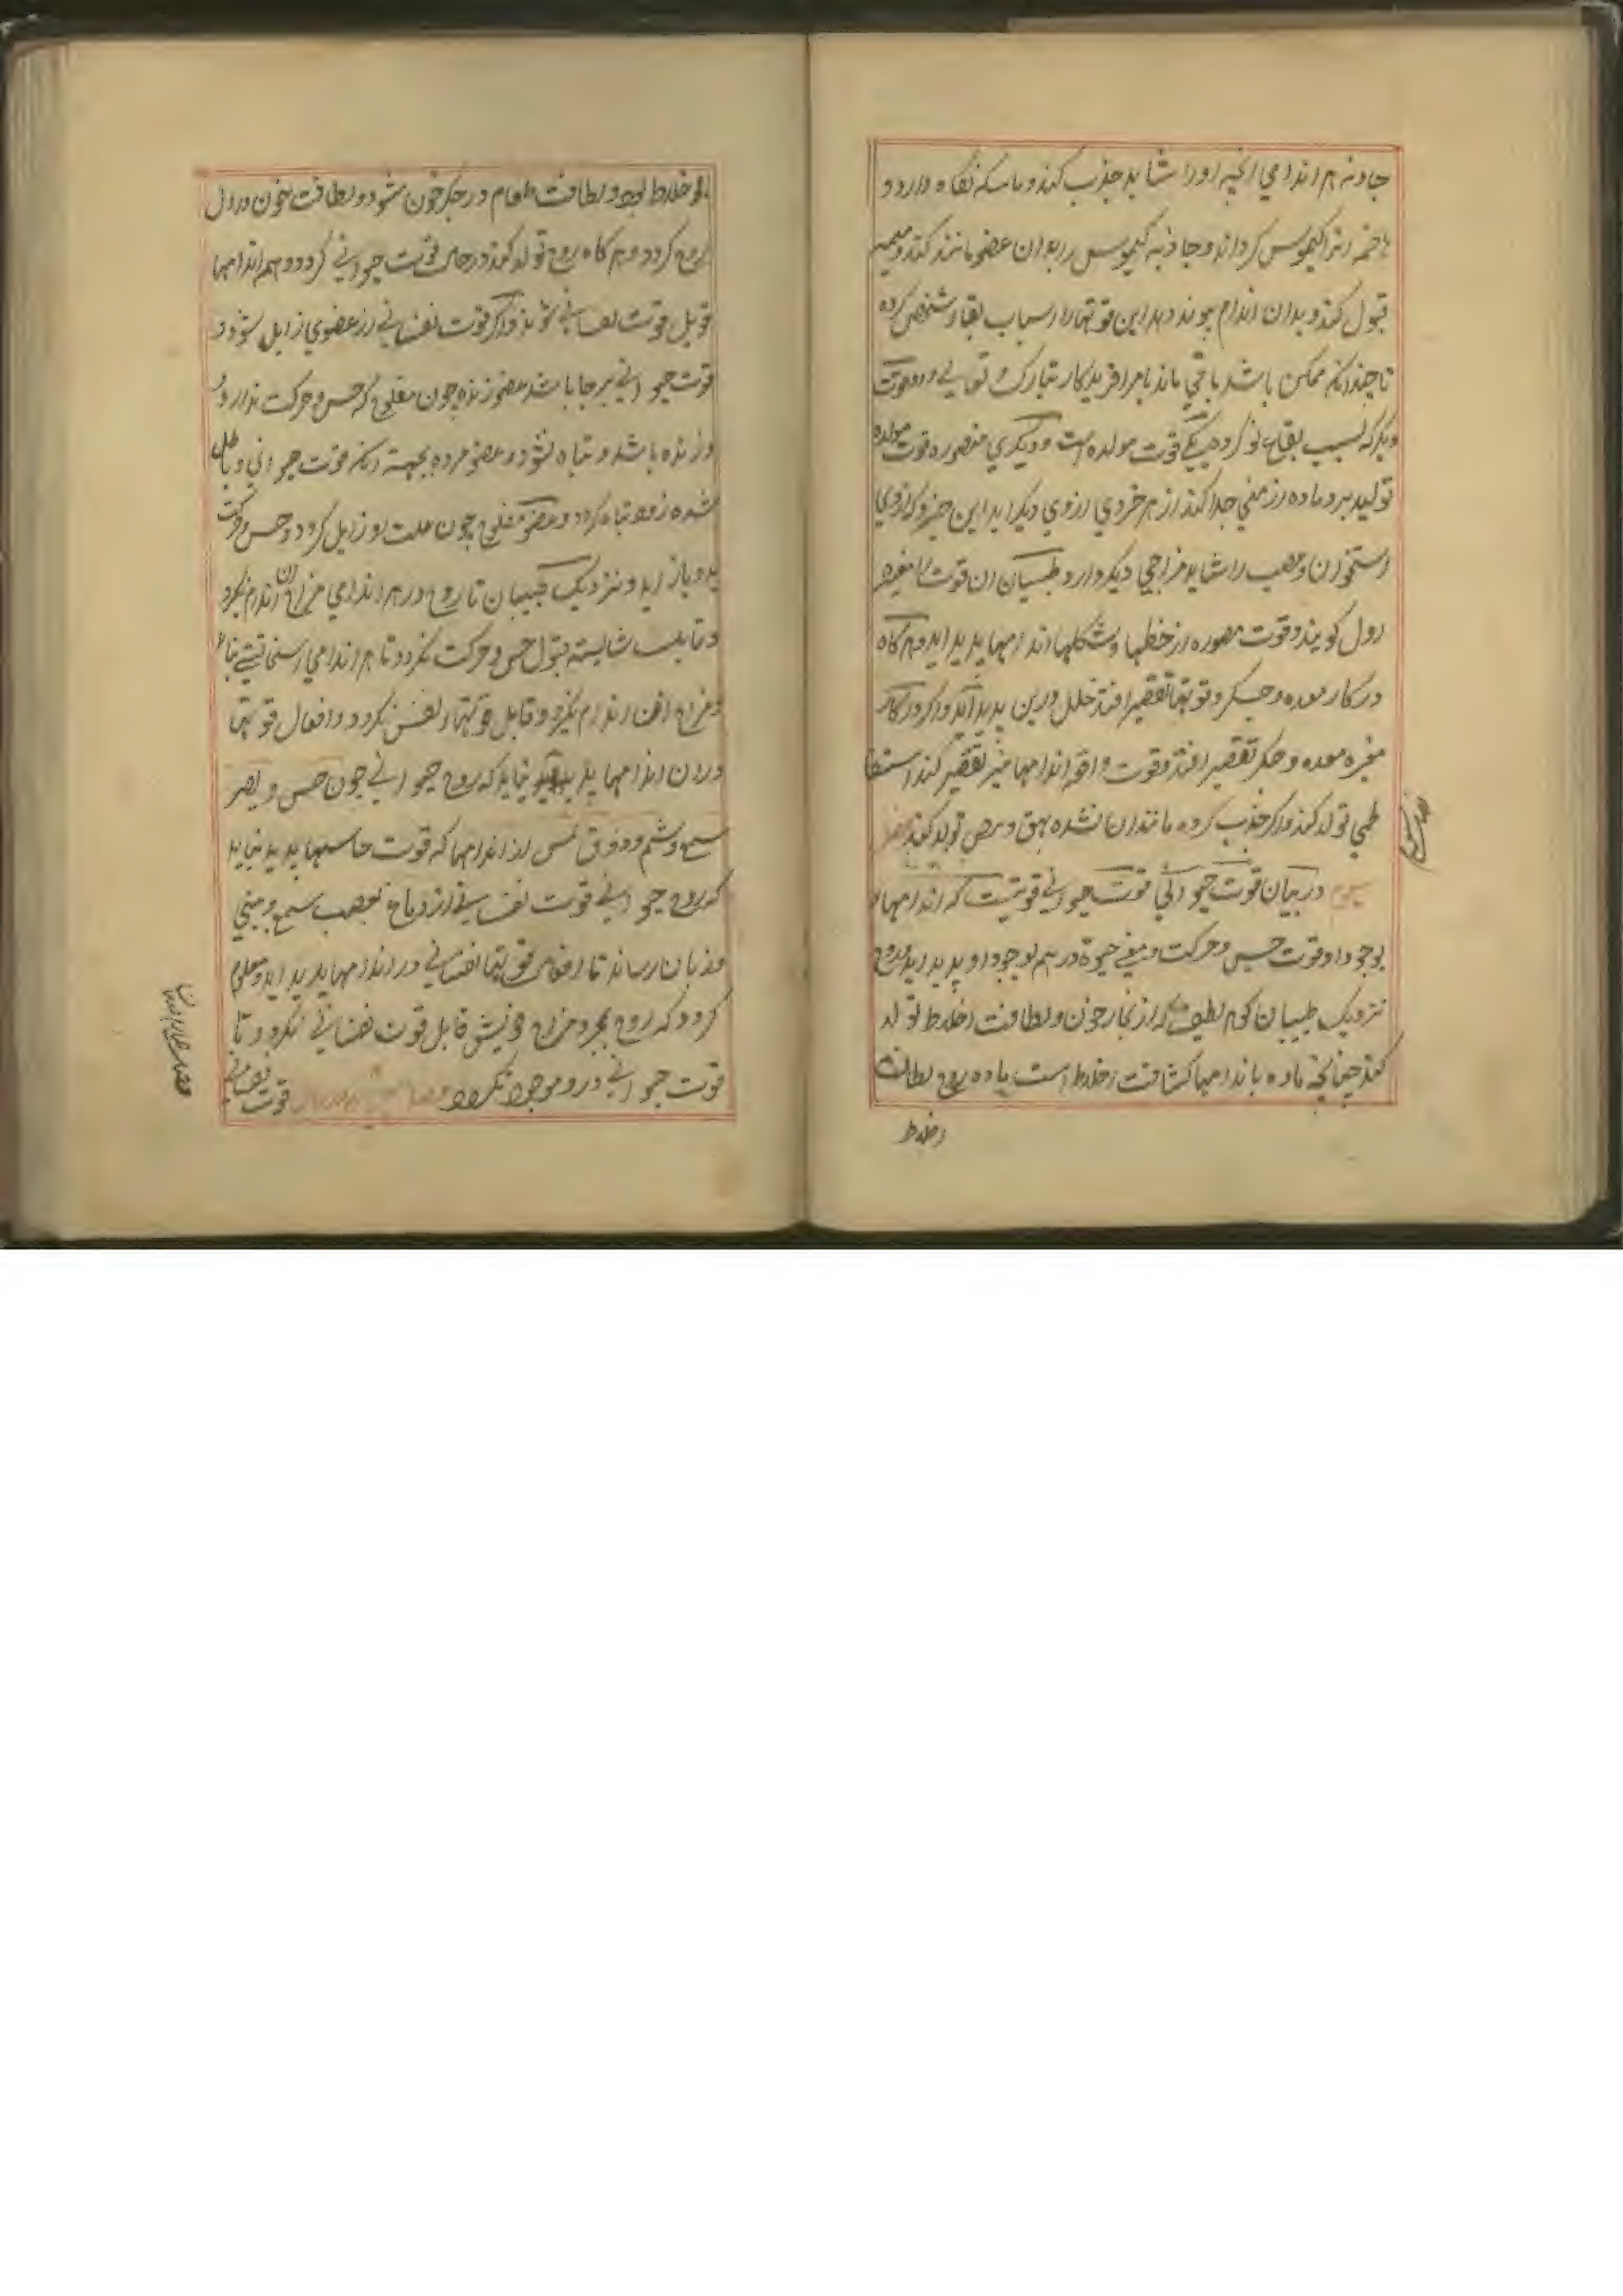 جاذبه هر اندامي انچه او را شايد جذب كند و ماسكه نكاه دارد و
هاضمه انرا كيموس كرداند و جاذبه كيموس را بدان عضو مانند كند و
قبول كند و بدان اندام پيوند دهد اين قوتها را اسباب بقاء شخص كرده
تا چندانكه ممكن باشد باقي ماند بامر افريدكار تبارك و تعالي و دو قوت
ديكر كه بسبب بقاء نوع كرده يكي قوت مولده است و ديكري مصوره قوت مولده
توليد بر و ماده از مني جدا كند از هر جزوي ارزوي ديكر ايد اين جزو كارزوي
استخوان و عصب را شايد مزاجي ديكر دارد و طبيبان ان قوت را مغيره
اول كويند و قوت مصوره از خطها و شكلها اندامها پديد ايد و هر كاه
در كار معده و جكر و قوتها تقصير افتد خلل درين پديد آيد و اكر در كار
مغيره معده و جكر تقصير افتد و قوت دافعه اندامها نيز تقصير كند استسقا
طبي تولد كند و اكر جذب كرده مانند ان نشده بهق و برص تولد كند فصل
سيوم در بيان قوت حيواني قوت حيواني قوتيست كه اندامها را
بوجود او قوت حس و حركت و معني حيوة در هم بوجود او پديد ايد و روح
نزديك طبيبان كوهر لطيف كه از بخار خون و لطافت اخلاط تولد
كند چنانچه ماده باندامها كثافت اخلاط است ماده روح لطافت
اخلاط
اخلاط بود و لطافت طعام در جكر خون شود و لطافت خون در دل
روح كردد و هر كاه روح تولد كند در حال قوت حيواني كردد و هم اندامها
قابل قوت نفساني شوند و اكر قوت نفساني از عضوي زايل شود و
قوت حيواني بر جا باشد عضو زنده چون مفلوج كه حس و حركت ندارد
و زنده باشد و تباه نشود و عضو مرده بجهت انكه قوت حيواني و باطل
شده زود تباه كردد و عضو مفلوج چون علت او زايل كردد و حس و حركت
بدو باز ايد و نزديك طبيبان تا روح در هر اندامي مزاج ان اندام نكيرد
و قالب شايسته قبول حس و حركت نكردد تا هر اندامي استحقاقيتي نيابد
و مزاج ان اندام نكيرد و قابل قوتهاء نفس نكردد و افعال قوتها
دران اندامها پديد نيايد كه روح حيواني چون حس و بصر
سمع و شم و ذوق لمس از اندامها كه قوت حاسها پديد نيايد
كه روح حيواني قوت نفساني از دماغ بعصب سمع و بيني
و زبان رساند تا افعال قوتها نفساني در اندامها پديد ايد و معلوم
كردد كه روح بمجرد مزاج خويش قابل قوت نفساني نكردد تا
قوت حيواني در و موجود نكردد فصل قوت نفساني